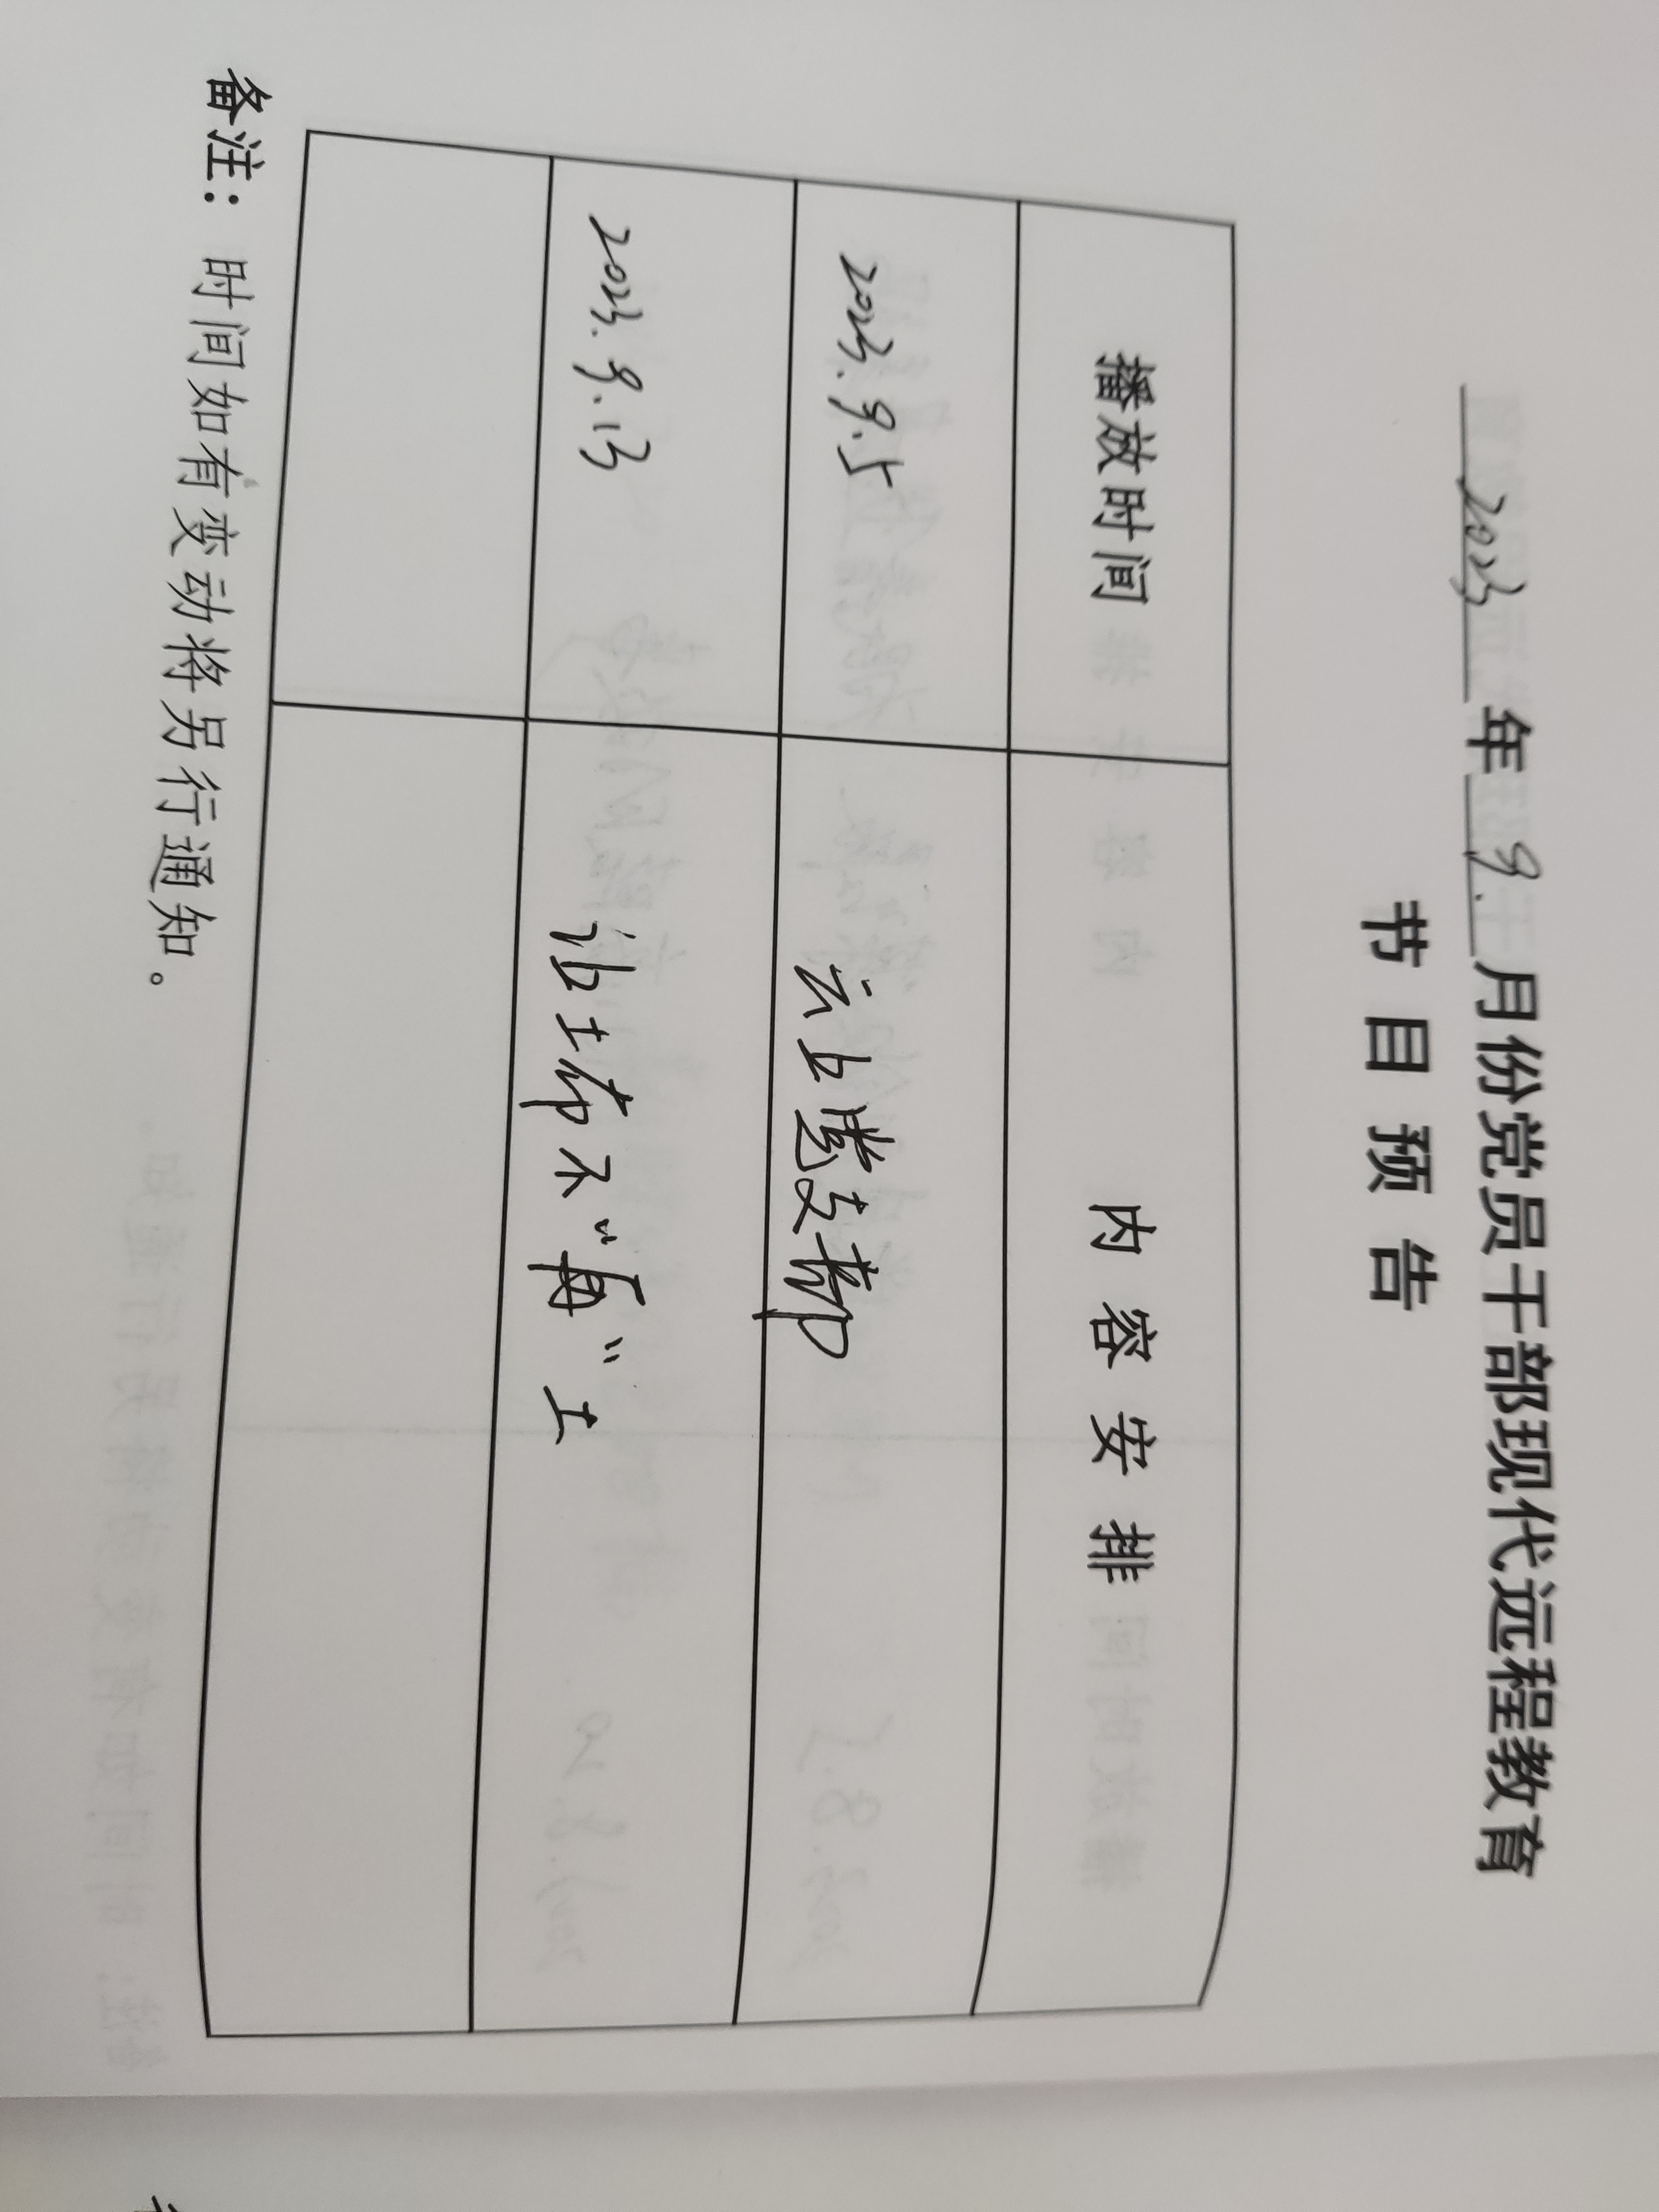 2023年9.月份党员干部现代远程教育
节目预告
播放时间 内容安排
2023.9.5 云上党支部
2023.9.13 让土布不“再”土
备注：时间如有变动将另行通知。